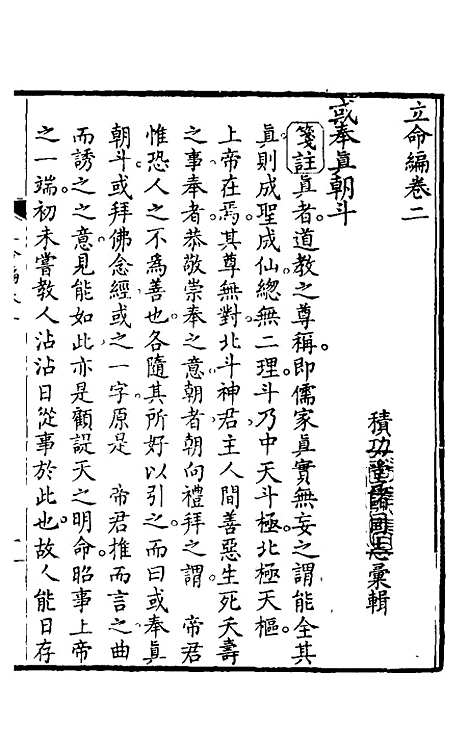 立命編卷二
積功堂同志彙輯
或奉真朝斗
箋註真者。道教之尊稱。即儒家真實無妄之謂能全其
真則成聖成仙總無二理。斗乃中天斗極。北極天樞。
上帝在焉。其尊無對。北斗神君。主人間善惡生死夭壽
之事奉者恭敬崇奉之意朝者朝向禮拜之謂。 帝君
惟恐人之不為善也。各隨其所好以引之。而曰或奉真
朝斗。或拜佛念經。或之一字。原是 帝君推而言之曲
而誘之之意。見能如此。亦是顧諟天之明命。昭事上帝
之一端。初未嘗教人沾沾日從事於此也。故人能日存